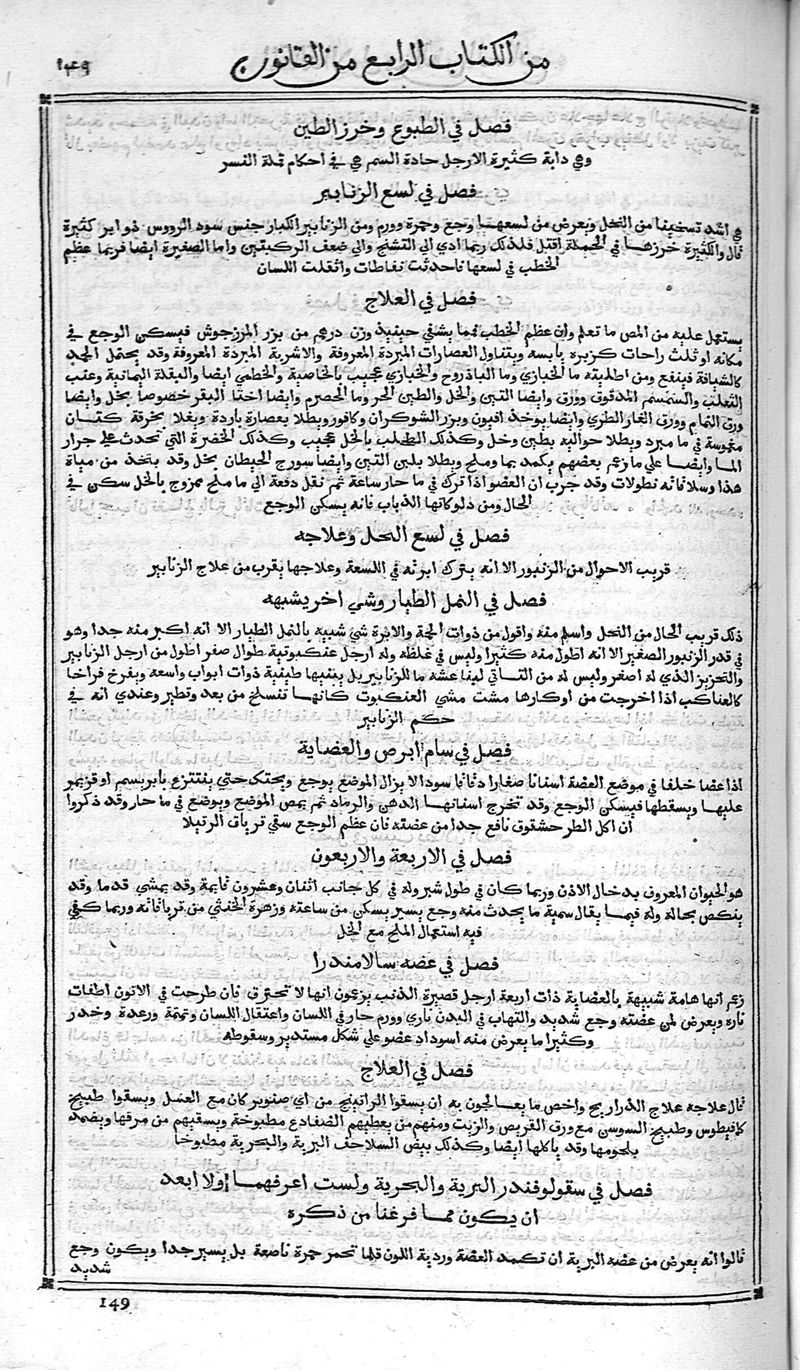 من الكتاب الرابع من القانون
١٤٩
فصل في الطبوع وخرز الطين
وهي دابة كثيرة الارجل حادة السم هي في احكام قملة النسر
فصل في لسع الزنابير
هي اشد تسخينا من النحل ويعرض من لسعهما وجع وحمرة وورم ومن الزنابير الكبار جنس سود الرووس ذو ابر كثيرة
قال والكثيرة خرزها في الجملة اقتل فلذلك ربما ادي الي التشنج والي ضعف الركبتين واما الصغيرة ايضا فربما عظم
الخطب في لسعها فاحدثت نفاطات واثقلت اللسان
فصل في العلاج
يستعمل عليه من المص ما تعلم وان عظم الخطب فمما يشفي حينيذ وزن درهم من بزر المرزجوش فيسكن الوجع في
مكانه او ثلث راحات كزبره يابسه ويتناول العصارات المبردة المعروفة والاشربة المبردة المعروفة وقد يحتمل الجمد
كالشيافة فينفع ومن اطليته ما الخبازي وما الباذروج والخبازي عجيب بالخاصية والخطمي ايضا والبقلة اليمانية وعنب
الثعلب والسمسم المدقوق وورق وايضا التين والخل والطين الحر وما الحصرم وايضا اخثا البقر خصوصا بخل وايضا
ورق النمام وورق الغار الطري وايضا يوخذ افيون وبزر الشوكران وكافور ويطلا بعصارة باردة ويغلا بخرقة كتان
مغموسة في ما مبرد ويطلا حواليه بطين وخل وكذلك الطحلب بالخل عجيب وكذلك الخضرة التي تحدث علي جرار
الما وايضا علي ما زعم بعضهم يكمد بما وملح ويطلا بلبن التين وايضا سورج الحيطان بخل وقد يتخذ من مياة
هذا وسلافاته نطولات وقد جرب ان العضو اذا ترك في ما حار ساعة ثم نقل دفعة الي ما ملح ممزوج بالخل سكن في
الحال ومن دلوكاتها الذباب فانه يسكن الوجع
فصل في لسع النحل وعلاجه
قريب الاحوال من الزنبور الا انه يترك ابرته في اللسعة وعلاجها يقرب من علاج الزنابير
فصل في النمل الطيار وشي اخر يشبهه
ذلك قريب الحال من النحل واسلم منه واقول من ذوات الحمة والابرة شي شبيه بالنمل الطيار الا انه اكبر منه جدا وهو
في قدر الزنبور الصغير الا انه اطول منه كثيرا وليس في غلظه وله ارجل عنكبوتية طوال صفر اطول من ارجل الزنابير
والتحزيز الذي له اصغر وليس له من التاتي لبنا عشه ما للزنابير بل يبنيها طينية ذوات ابواب واسعه ويفرخ فراخا
كالعناكب اذا اخرجت من اوكارها مشت مشي العنكبوت كانها تنسلخ من بعد وتطير وعندي انه في
حكم الزنابير
فصل في سام ابرص والعضاية
اذا عضا خلفا في موضع العضة اسنانا صغارا دقاقا سودا لا يزال الموضع يوجع ويحتك حتي ينتزع بابريسم او قز يمر
عليها ويسقطها فيسكن الوجع وقد تخرج اسنانهما الدهن والرماد ثم يمص الموضع ويوضع في ما حار وقد ذكروا
ان اكل الطرحشقوق نافع جدا من عضته فان عظم الوجع سقي ترياق الرتيلا
فصل في الاربعة والاربعون
هو الحيوان المعروف بدخال الاذن وربما كان في طول شبر وله في كل جانب اثنان وعشرون قايمة وقد يمشي قدما وقد
ينكص بحاله وله فيما يقال سمية ما يحدث منه وجع يسير يسكن من ساعته وزهرة الخنثي من ترياقاته وربما كفي
فيه استعمال الملح مع الخل
فصل في عضه سالامندرا
زعم انها هامة شبيهة بالعضاية ذات اربعة ارجل قصيرة الذنب يزعمون انها لا تحترق فان طرحت في الاتون اطفات
ناره ويعرض لمن عضته وجع شديد والتهاب في البدن ناري وورم حار في اللسان واعتقال اللسان وتمتمة ورعدة وخدر
وكثيرا ما يعرض منه اسوداد عضو علي شكل مستدير وسقوطه
فصل في العلاج
قال علاجه علاج الذراريح واخص ما يعالجون به ان يسقوا الراتينج من اي صنوبر كان مع العسل ويسقوا طبيخ
كمافيطوس وطبيخ السوسن مع ورق القريص والزيت ومنهم من يعطيهم الضفادع مطبوخة ويسقيهم من مرقها ويضمد
بلحومها وقد ياكلها ايضا وكذلك بيض السلاحف البرية والبحرية مطبوخا
فصل في سقولوفندر البرية والبحرية ولست اعرفهما ولا ابعد
ان يكون مما فرغنا من ذكره
قالوا انه يعرض من عضه البرية ان تكمد العضة وردية اللون قلما تحمر حمرة ناصعة بل يسير جدا ويكون وجع
شديد
149